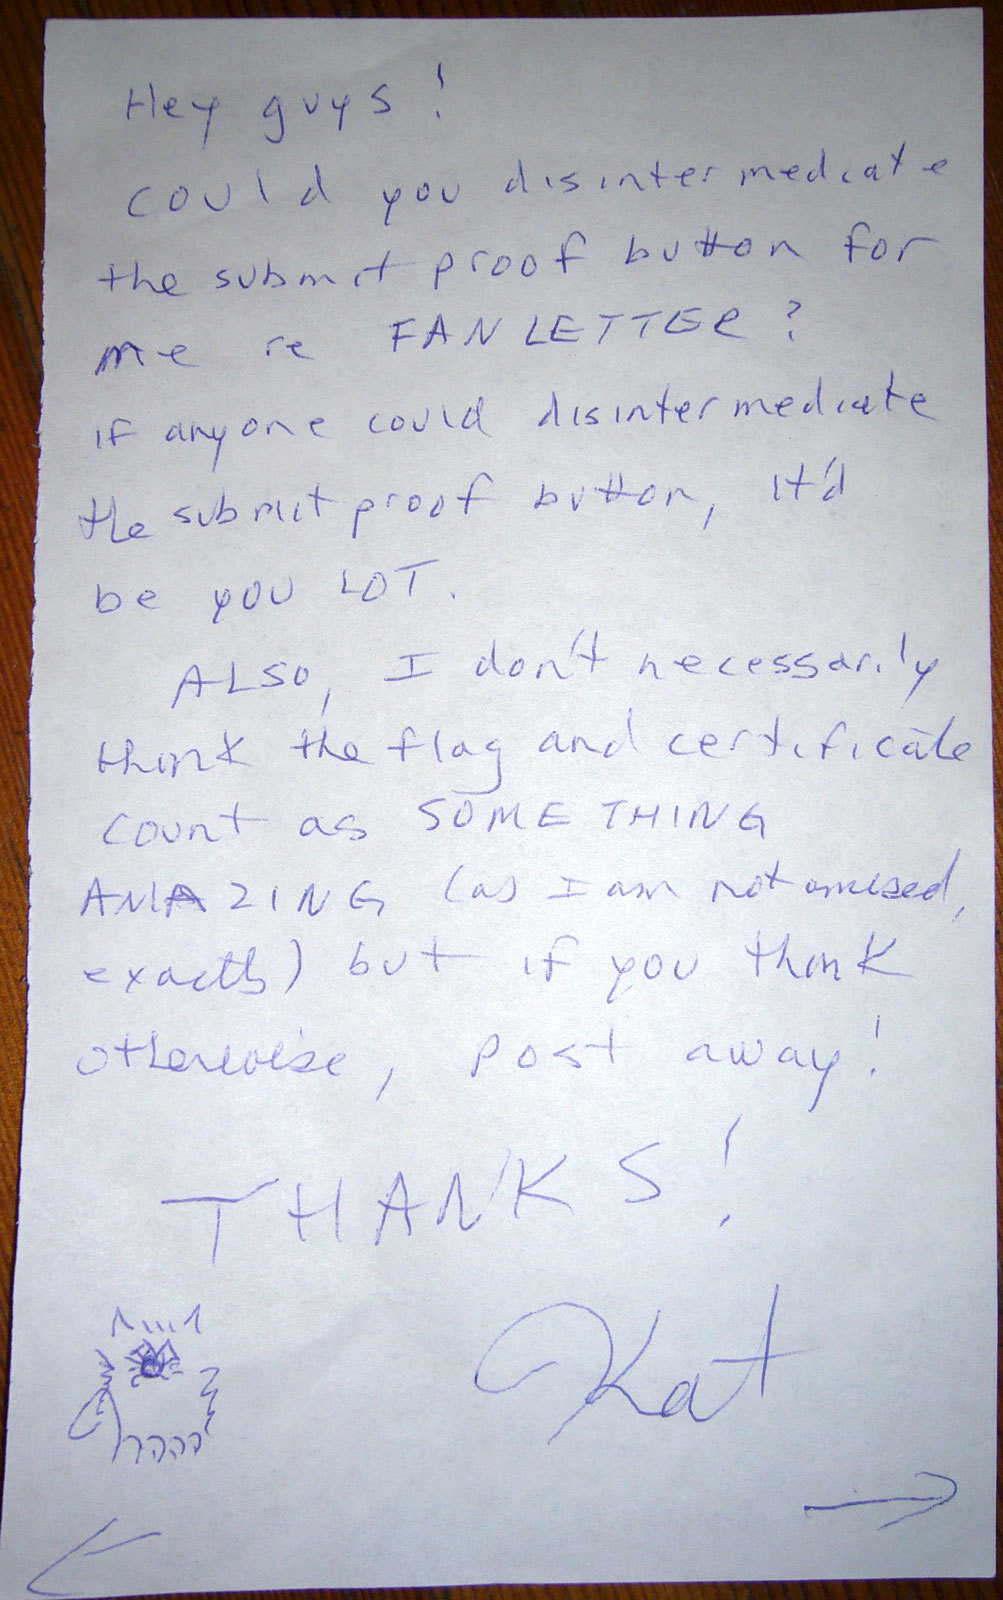 Hey guys!
could you disintermediate
the submit proof button for
me re FAN LETTER?
if anyone could disintermediate
the submit proof button, it'd
be you LOT.
ALSO, I don't necessarily
think the flag and certificate
count as SOMETHING
AMAZING (as I am not amazed,
exactly) but if you think
otherwise, post away!
THANKS!
Kat